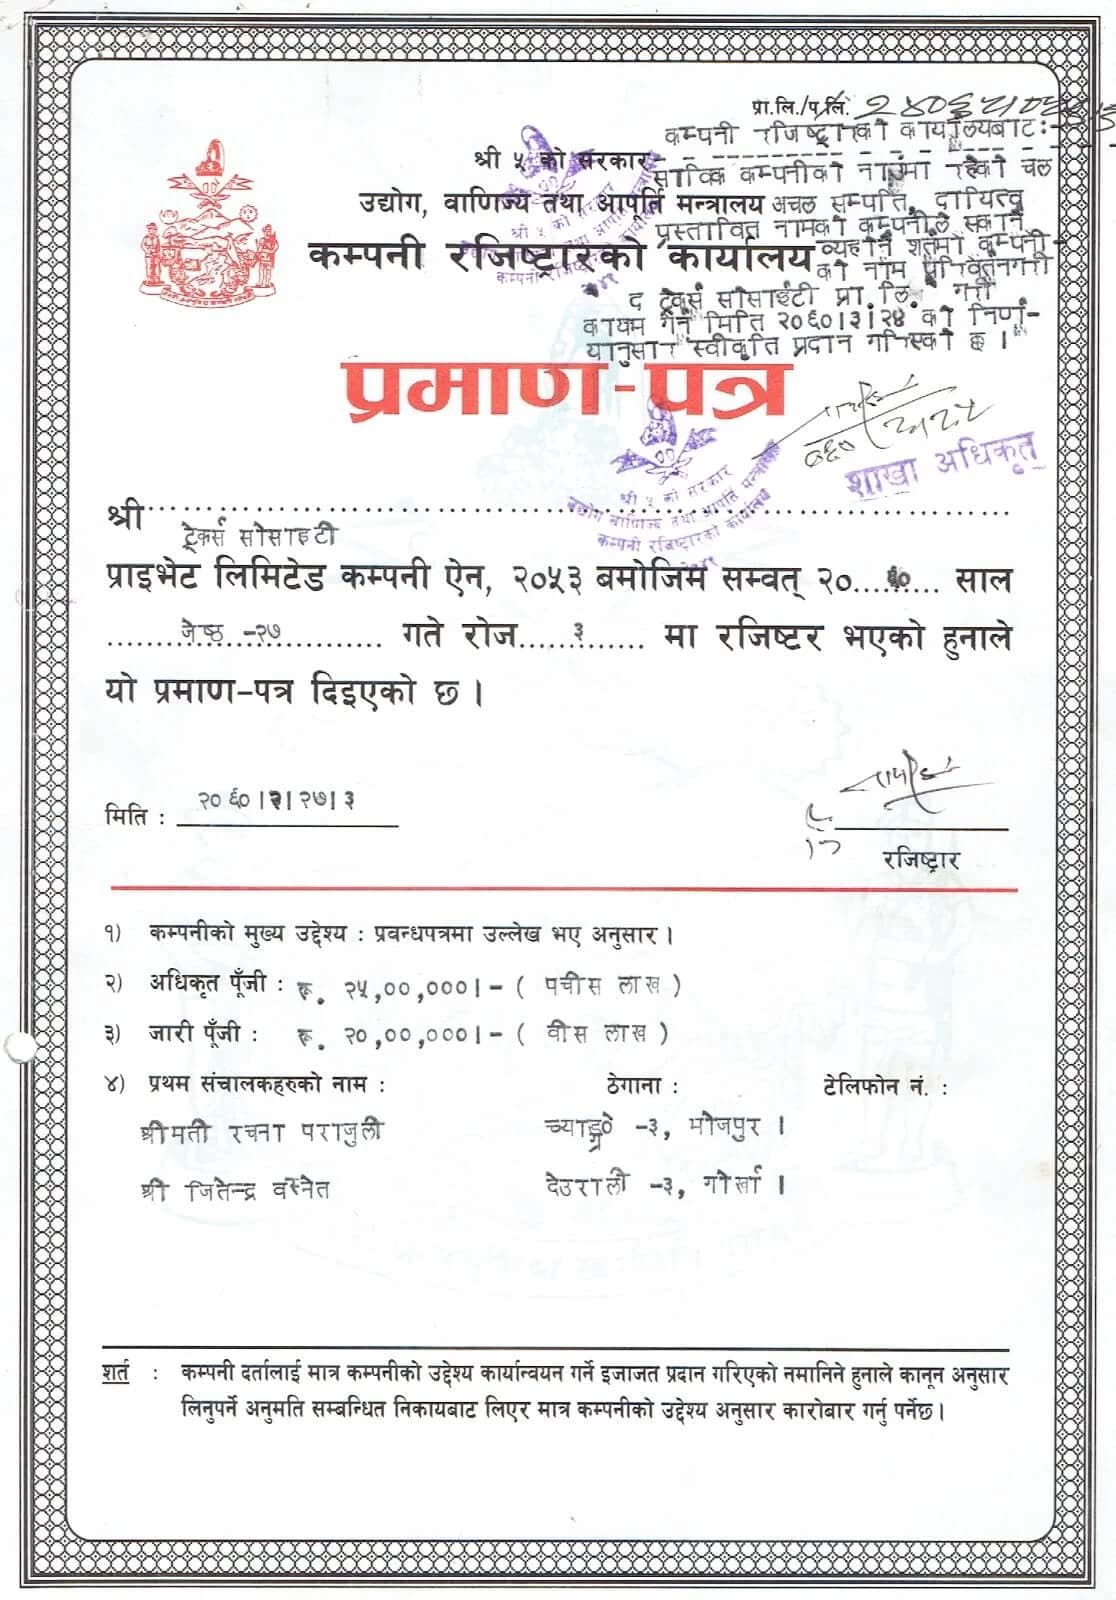 प्रा.लि./प.लि.
कम्पनी रजिष्ट्रारको कार्यालयबाट:-
श्री ५ को सरकार
साविक कम्पनीको नाउंमा रहेको चल
उद्योग, वाणिज्य तथा आपूर्ति मन्त्रालय
अचल सम्पत्ति, दायित्व
प्रस्तावित नामको कम्पनीले सकार्ने
कम्पनी रजिष्ट्रारको कार्यालय
व्यहोर्ने शर्तमा कम्पनी-
को नाम परिवर्तनगरी
द ट्रेकर्स सोसाईटी प्रा. लि. गरी
कायम गर्ने मिति २०६०।३।२४ को निर्ण-
यानुसार स्वीकृति प्रदान गरिएको छ ।
प्रमाण-पत्र
शाखा अधिकृत
श्री ५ को सरकार
उद्योग वाणिज्य तथा आपूर्ति मन्त्रालय
कम्पनी रजिष्ट्रारको कार्यालय
श्री
ट्रेकर्स सोसाइटी
प्राइभेट लिमिटेड कम्पनी ऐन, २०५३ बमोजिम सम्वत् २०...६०... साल
जेष्ठ -२७ गते रोज....३...... मा रजिष्टर भएको हुनाले
यो प्रमाण-पत्र दिइएको छ ।
मिति : २०६०।२।२७।३
रजिष्ट्रार
१) कम्पनीको मुख्य उद्देश्य : प्रवन्धपत्रमा उल्लेख भए अनुसार ।
२) अधिकृत पूँजी : रू. २५,००,०००।- ( पचीस लाख )
३) जारी पूँजी : रू. २०,००,०००।- ( वीस लाख )
४) प्रथम संचालकहरुको नाम : ठेगाना : टेलिफोन नं. :
श्रीमती रचना पराजुली -३, भोजपुर ।
श्री जितेन्द्र वस्नेत देउराली -३, गोर्खा ।
शर्त : कम्पनी दर्तालाई मात्र कम्पनीको उद्देश्य कार्यान्वयन गर्ने इजाजत प्रदान गरिएको नमानिने हुनाले कानून अनुसार
लिनुपर्ने अनुमति सम्बन्धित निकायबाट लिएर मात्र कम्पनीको उद्देश्य अनुसार कारोबार गर्नु पर्नेछ।